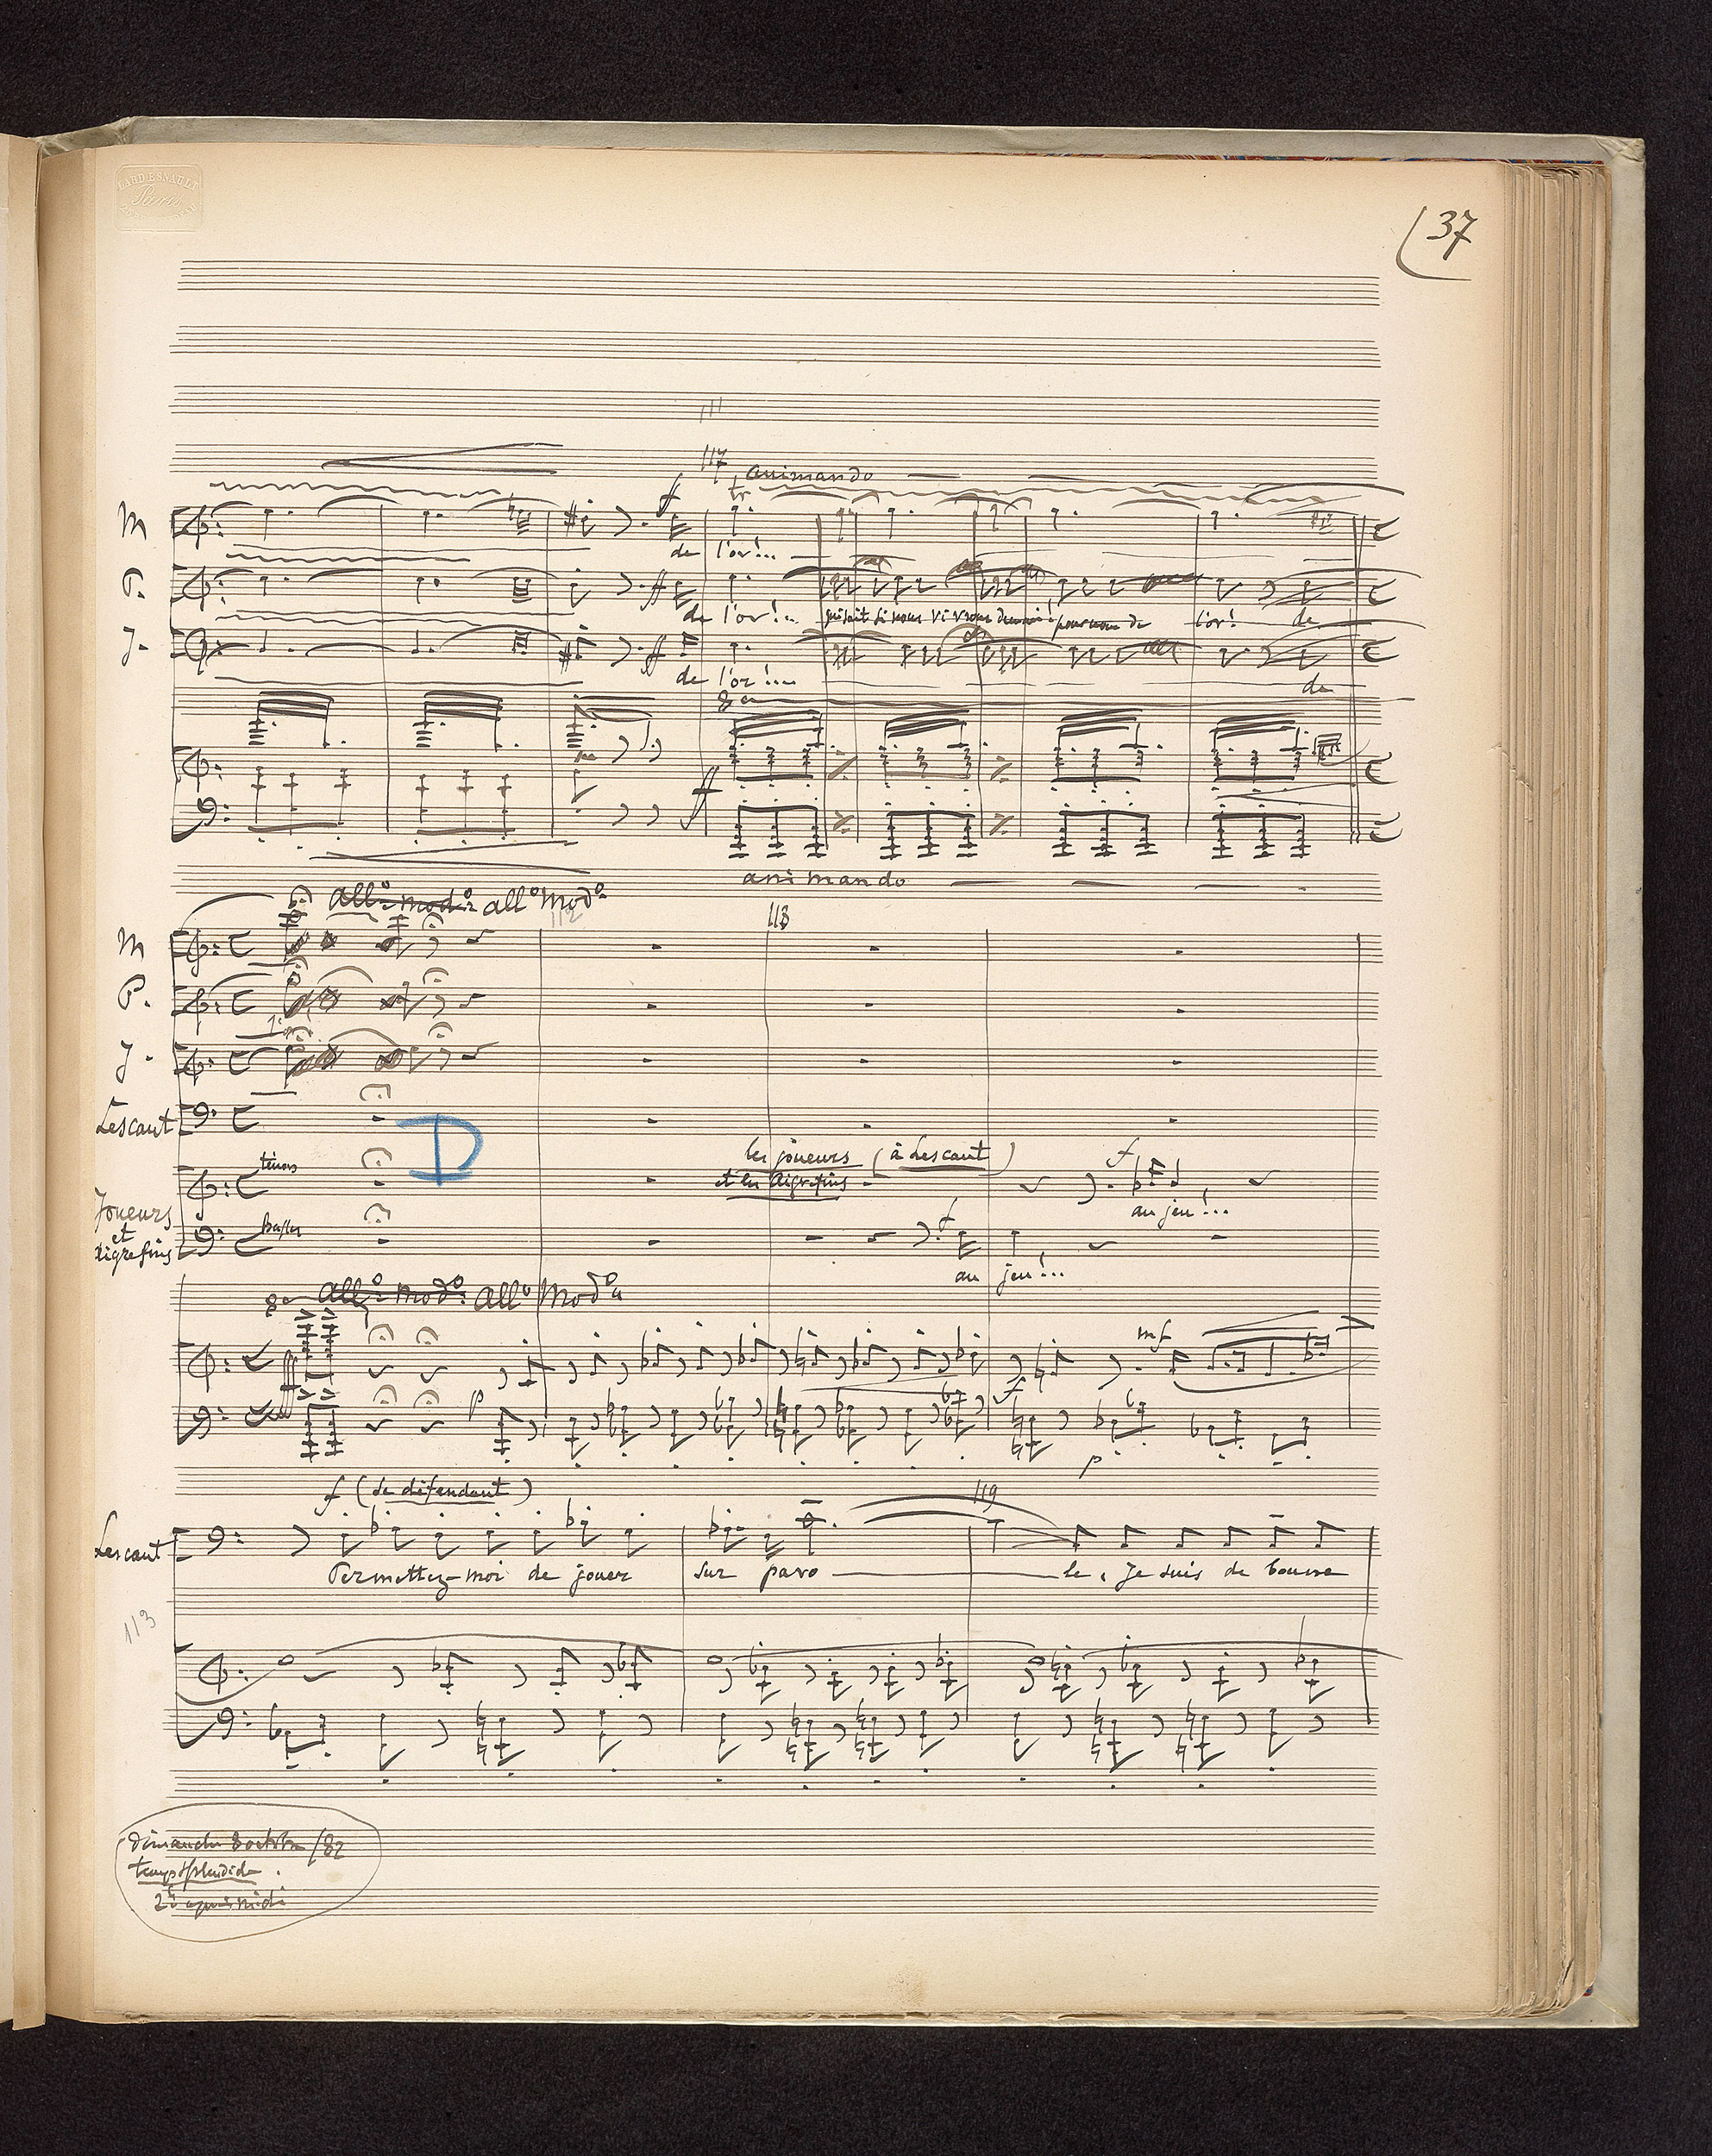 LARD-ESNAULT
Paris
37
111
117 animando
M
f
tr
de l'or!...
P.
ff
de l'or!... qui sait si nous vivrons demain! pour nous de l'or! de
J.
ff
de l'or!...
de
8a
ff
animando
All° mod° all° Mod°
112
113
M
P.
J.
Lescaut
D
ténors
les joueurs (à Lescaut)
et les Aigrefins
f
au jeu!...
Joueurs
et
Aigrefins
basses
f
au jeu!...
8a All° mod° All° Mod°
mf
p
f
p
f (se défendant)
119
Lescaut
Permettez-moi de jouer sur paro le. Je suis de bonne
113
Dimanche 8 octobre /82
temps splendide.
2h après midi